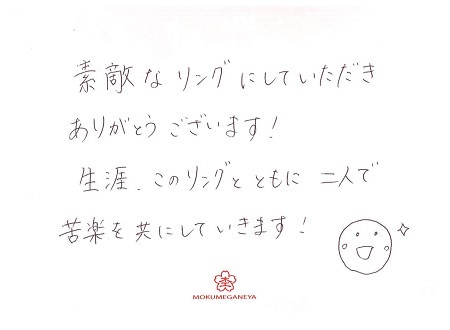 素敵なリングにしていただき
ありがとうございます!
生涯、このリングとともに二人で
苦楽を共にしていきます!
杢
MOKUMEGANEYA